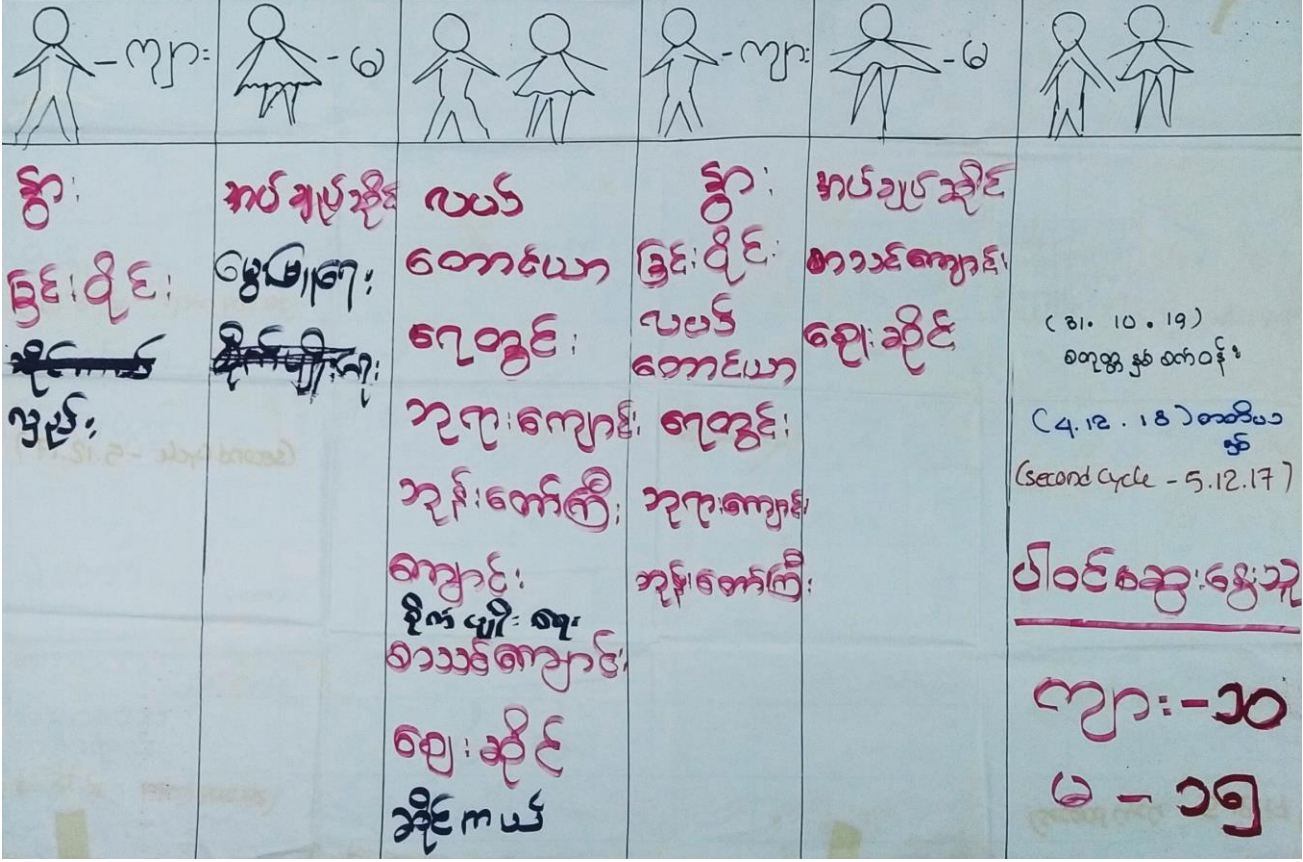 - ကျား
နွား
ခြင်းဝိုင်း
လှည်း
- မ
အပ်ချုပ်ဆိုင်
မွေးမြူရေး
လယ်
တောင်ယာ
ရေတွင်း
ဘုရားကျောင်း
ဘုန်းတော်ကြီး
ကျောင်း
စိုက်ပျိုးရေး
စာသင်ကျောင်း
ဈေးဆိုင်
ဆိုင်ကယ်
- ကျား
နွား
ခြင်းဝိုင်း
လယ်
တောင်ယာ
ရေတွင်း
ဘုရားကျောင်း
ဘုန်းတော်ကြီး
- မ
အပ်ချုပ်ဆိုင်
စာသင်ကျောင်း
ဈေးဆိုင်
(31. 10. 19)
စတုတ္ထနှစ်
(4.12.18) တတိယ
နှစ်
(second cycle - 5.12.17)
ပါဝင်ဆွေးနွေးသူ
ကျား - ၁၀
မ - ၁၅